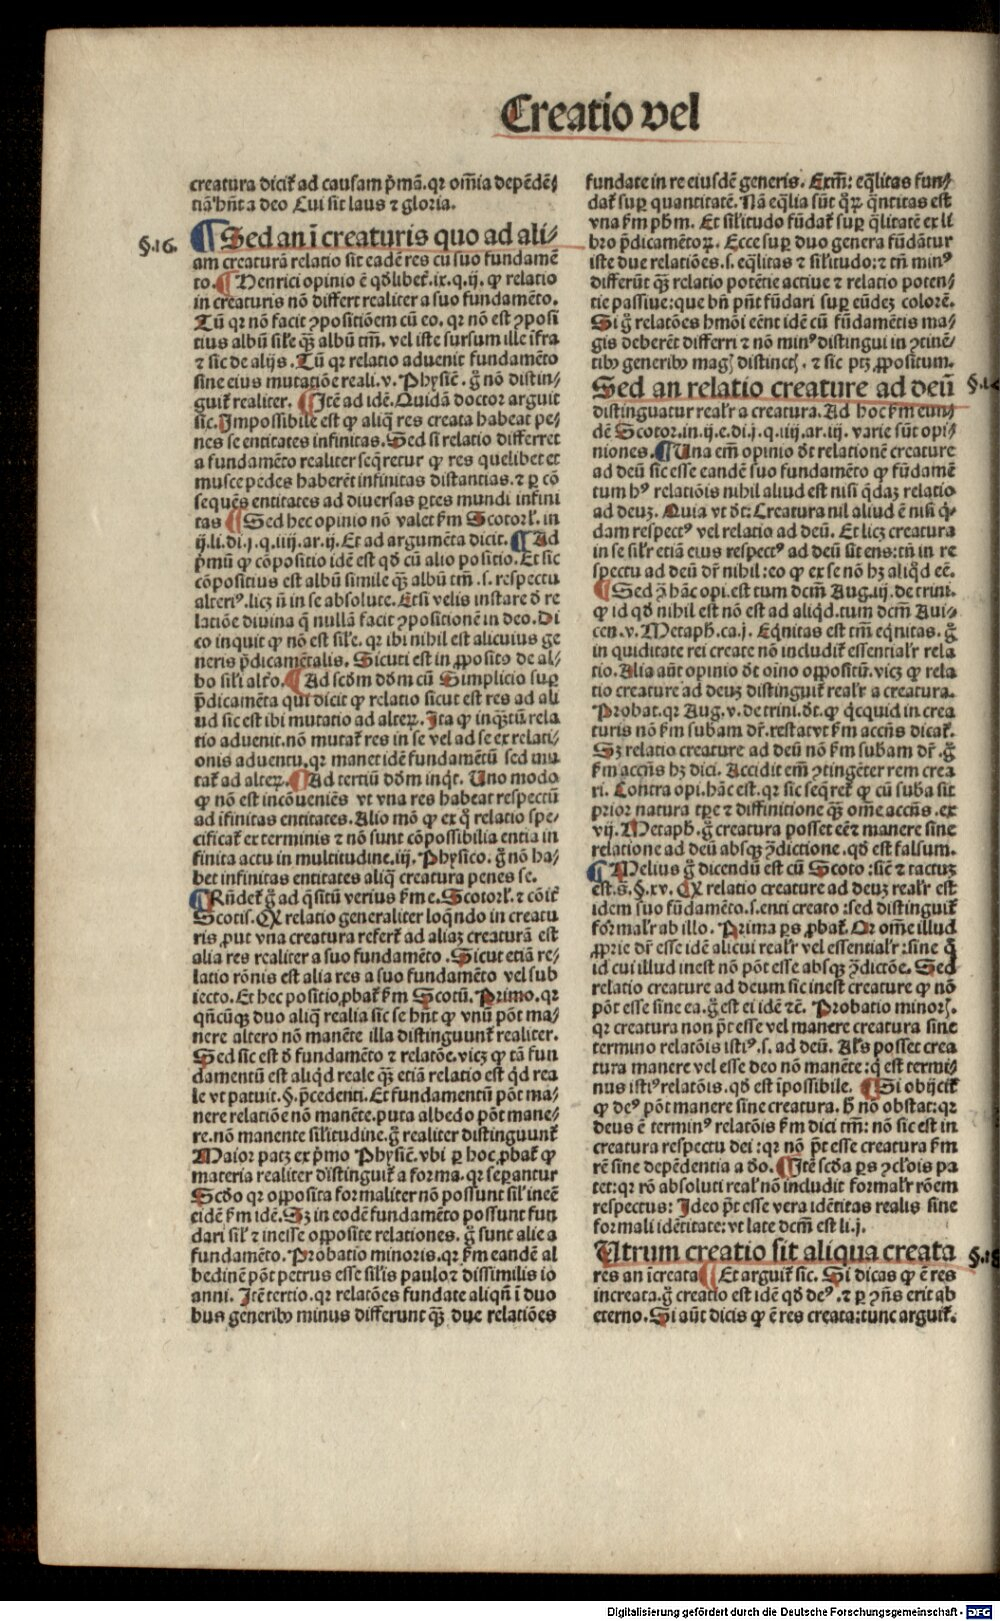 Creatio vel
creatura dicit̃ ad causam p̃mã.qr om̃ia depẽdẽ⸗
tiã hñt a deo Cui sit laus ⁊ gloria.
§.16.
¶ Sed an ĩ creaturis quo ad ali⸗
am creaturã relatio sit eadẽ res cũ suo fundamẽ
to.¶ Henrici opinio ẽ qđlibet̃.ix.q.ij. ꝙ relatio
in creaturis nõ differt realiter a suo fundamẽto.
Tũ qr nõ facit ꝯpositiõem cũ eo. qr nõ est ꝯposi
tius albũ sil̃e qꝫ̃ albũ tm̃. vel iste sursum ille ĩfra
⁊ sic de alijs. Tũ qr relatio aduenit fundamẽto
sine eius mutatiõe reali.v. Physic̃. g̃ nõ distin⸗
guit̃ realiter. ¶ Itẽ ad idẽ. Quidã doctor arguit
sic. Impossibile est ꝙ aliq̃ res creata habeat pe⸗
nes se entitates infinitas. Sed si relatio differret
a fundamẽto realiter seq̃retur ꝙ res quelibet et
musce pedes haberẽt infinitas distantias.⁊ ꝑ cõ
sequẽs entitates ad diuersas ꝑtes mundi infini
tas ¶ Sed hec opinio nõ valet ẜm Scotorl̃. in
ij.li.di.j.q.iiij.ar.ij. Et ad argumẽta dicit. ¶ Ad
p̃mũ ꝙ cõpositio idẽ est qđ cũ alio positio. Et sic
cõpositius est albũ simile qꝫ̃ albũ tm̃.s.respectu
alteriꝰ.licꝫ ñ in se absolute. Etsi velis instare đ re
latiõe diuina q̃ nullã facit ꝯpositionẽ in deo. Di
co inquit ꝙ nõ est sil̃e. qr ibi nihil est alicuius ge
neris p̃dicamẽtalis. Sicuti est in ꝓposito de al⸗
bo sil̃i altr̃o. ¶ Ad scđm dõm cũ Simplicio suꝑ
p̃dicamẽta qui dicit ꝙ relatio sicut est res ad ali
ud sic est ibi mutatio ad alteꝝ. Ita ꝙ inqꝫ̃tũ rela
tio aduenit.nõ mutat̃ res in se vel ad se ex relati⸗
onis aduentu.qr manet idẽ fundamẽtũ sed mu
tat̃ ad alteꝝ.¶ Ad tertiũ dõm inq̃t. Uno modo
ꝙ nõ est incõueniẽs vt vna res habeat respectũ
ad ĩfinitas entitates. Alio mõ ꝙ ex q̃ relatio spe⸗
cificat̃ ex terminis ⁊ nõ sunt cõpossibilia entia in
finita actu in multitudine.iij. Physico. g̃ nõ ha⸗
bet infinitas entitates aliq̃ creatura penes se.
¶ Rñdet̃ g̃ ad q̃sitũ verius ẜm e. Scotorl̃. ⁊ cõit̃
Scotis. Q relatio generaliter loq̃ndo in creatu
ris ꝓut vna creatura refert̃ ad aliaꝫ creaturã est
alia res realiter a suo fundamẽto. Sicut etiã re⸗
latio rõnis est alia res a suo fundamẽto vel sub
iecto. Et hec positio ꝓbat̃ ẜm Scotũ. Primo.qr
qñcũqꝫ duo aliq̃ realia sic se hñt ꝙ vnũ põt ma⸗
nere altero nõ manẽte illa distinguunt̃ realiter.
Sed sic est đ fundamẽto ⁊ relatõe.vicꝫ ꝙ tã fun
damentũ est aliqđ reale qꝫ̃ etiã relatio est qđ rea
le vt patuit. §. p̃cedenti. Et fundamentũ põt ma⸗
nere relatiõe nõ manẽte.puta albedo põt mane⸗
re.nõ manente sil̃itudine.g̃ realiter distinguunt̃
Maior patꝫ ex p̃mo Physic̃.vbi ꝑ hoc ꝓbat̃ ꝙ
materia realiter distinguit̃ a forma.qr seꝑantur
Scđo qr opposita formaliter nõ possunt sil̃ inẽe
eidẽ ẜm idẽ. Sꝫ in eodẽ fundamẽto possunt fun
dari sil̃ ⁊ inesse opposite relationes. g̃ sunt alie a
fundamẽto. Probatio minoris.qr ẜm eandẽ al
bedinẽ põt petrus esse sil̃is paulo ⁊ dissimilis io
anni. Itẽ tertio.qr relatões fundate aliqñ ĩ duo
bus generibꝰ minus differunt qꝫ̃ due relatiões
fundate in re eiusdẽ generis. Exm̃: eq̃litas fun⸗
dat̃ suꝑ quantitatẽ. Nã eq̃lia sũt q̃ꝝ q̃ntitas est
vna ẜm phm. Et sil̃itudo fũdat̃ suꝑ q̃litatẽ ex li
bro p̃dicamẽtoꝝ. Ecce suꝑ duo genera fũdãtur
iste due relatiões.s.eq̃litas ⁊ sil̃itudo:⁊ tñ minꝰ
differũt qꝫ̃ relatio potẽtie actiue ⁊ relatio poten⸗
tie passiue:que bñ pñt fũdari suꝑ eũdeꝫ colorẽ.
Si g̃ relatões hmõi eẽnt idẽ cũ fũdamẽtis ma⸗
gis deberẽt differri ⁊ nõ minꝰ distingui in ꝯtinẽ⸗
tibꝰ generibꝰ mag̃ distinct̃. ⁊ sic ptꝫ ꝓpositum.
Sed an relatio creature ad deũ
distinguatur real̃r a creatura. Ad hoc ẜm eun⸗
dẽ Scotor.in.ij.e.di.j.q.iiij.ar.iij. varie sũt opi⸗
niones. ¶ Una em̃ opinio đt relationẽ creature
ad deũ sic esse eandẽ suo fundamẽto ꝙ fũdamẽ
tum hꝰ relatiõis nihil aliud est nisi q̃daꝫ relatio
ad deuꝫ. Quia vt đt: Creatura nil aliud ẽ nisi q̃⸗
dam respectꝰ vel relatio ad deũ. Et licꝫ creatura
in se sil̃r etiã eius respectꝰ ad deũ sit ens:tñ in re
spectu ad deũ dr̃ nihil: eo ꝙ ex se nõ hꝫ aliqđ eẽ.
¶ Sed ꝯ̃ hãc opi.est tum dcm̃ Aug.iij.de trini.
ꝙ id qđ nihil est nõ est ad aliqđ.tum dcm̃ Aui⸗
cen.v. Metaph̃.ca.j. Eq̃nitas est tm̃ eq̃nitas. g̃
in quiditate rei create nõ includit̃ essential̃r rela
tio. Alia aũt opinio đt oino oppositũ.vicꝫ ꝙ rela
tio creature ad deuꝫ distinguit̃ real̃r a creatura.
Probat.qr Aug.v.de trini.đt.ꝙ q̃cquid in crea
turis nõ ẜm subam dr̃.restat vt ẜm accñs dicat̃.
Sꝫ relatio creature ad deũ nõ ẜm subam dr̃ .g̃
ẜm accñs hꝫ dici. Accidit em̃ ꝯtingẽter rem crea
ri. Contra opi.hãc est.qr sic seq̃ret̃ ꝙ cũ suba sit
prior natura tꝑe ⁊ diffinitione qꝫ̃ om̃e accñs.ex
vij. Metaph̃. g̃ creatura posset eẽ ⁊ manere sine
relatione ad deũ absqꝫ ꝯ̃dictione.qđ est falsum.
¶ Melius g̃ dicendũ est cũ Scoto :sic̃ ⁊ tactuꝫ
est.s.§.xv. Q relatio creature ad deuꝫ real̃r est
idem suo fũdamẽto.s.enti creato :sed distinguit̃
formal̃r ab illo. Prima ꝑs ꝓbat̃. Qr om̃e illud
ꝓprie dr̃ esse idẽ alicui real̃r vel essential̃r :sine q̃
id cui illud inest nõ põt esse absqꝫ ꝯ̃dictõe. Sed
relatio creature ad deum sic inest creature ꝙ nõ
põt esse sine ea.g̃ est ei idẽ ⁊c̃. Probatio minor̃.
qr creatura non pt̃ esse vel manere creatura sine
termino relatõis istiꝰ.s. ad deũ. Al̃s posset crea
tura manere vel esse deo nõ manẽte:q̃ est termi⸗
nus istiꝰ relatõis.qđ est ĩpossibile. ¶ Si obijcit̃
ꝙ deꝰ põt manere sine creatura. h̃ nõ obstat:qr
deus ẽ terminꝰ relatõis ẜm dici tm̃: nõ sic est in
creatura respectu dei :qr nõ pt̃ esse creatura ẜm
rẽ sine depẽdentia a đo. ¶ Itẽ scđa ꝑs ꝯclõis pa
tet:qr rõ absoluti real̃ nõ includit formal̃r rõem
respectus: Ideo pt̃ esse vera idẽtitas realis sine
formali idẽtitate:vt late dcm̃ est li.j.
Utrum creatio sit aliqua creata
res an ĩcreata ¶ Et arguit̃ sic. Si dicas ꝙ ẽ res
increata.g̃ creatio est idẽ qđ deꝰ.⁊ ꝑ ꝯñs erit ab
eterno. Si aũt dicis ꝙ ẽ res creata:tunc arguit̃.
Digitalisierung gefördert durch die Deutsche Forschungsgemeinschaft - DFG